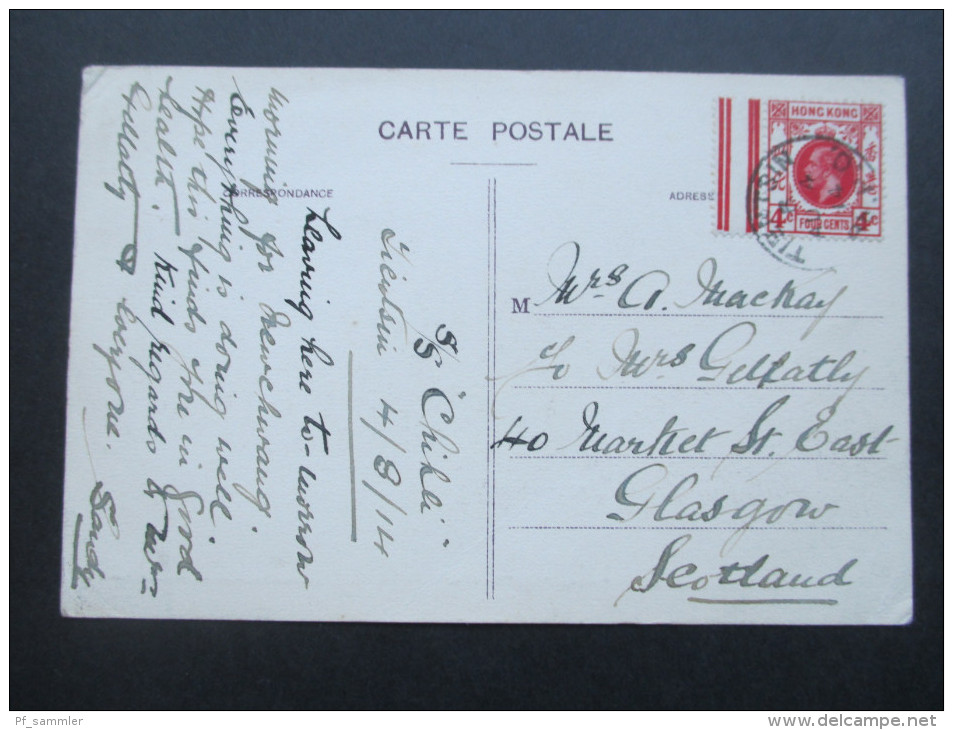 CARTE POSTALE
CORRESPONDANCE
ADRESSE
HONG KONG
香
4C 4C
FOUR CENTS
TIENTSIN
S/S "Chihli"
Tientsin 4/3/14
Leaving here to-morrow
morning for Newchwang.
Everything is doing well.
Hope this finds you in good
health. Kind regards to Mrs
Gellatly & everyone.
Sandy
M
Mrs A. Mackay
c/o Mrs Gellatly
40 Market St. East
Glasgow
Scotland
Pf_sammler
www.delcampe.net